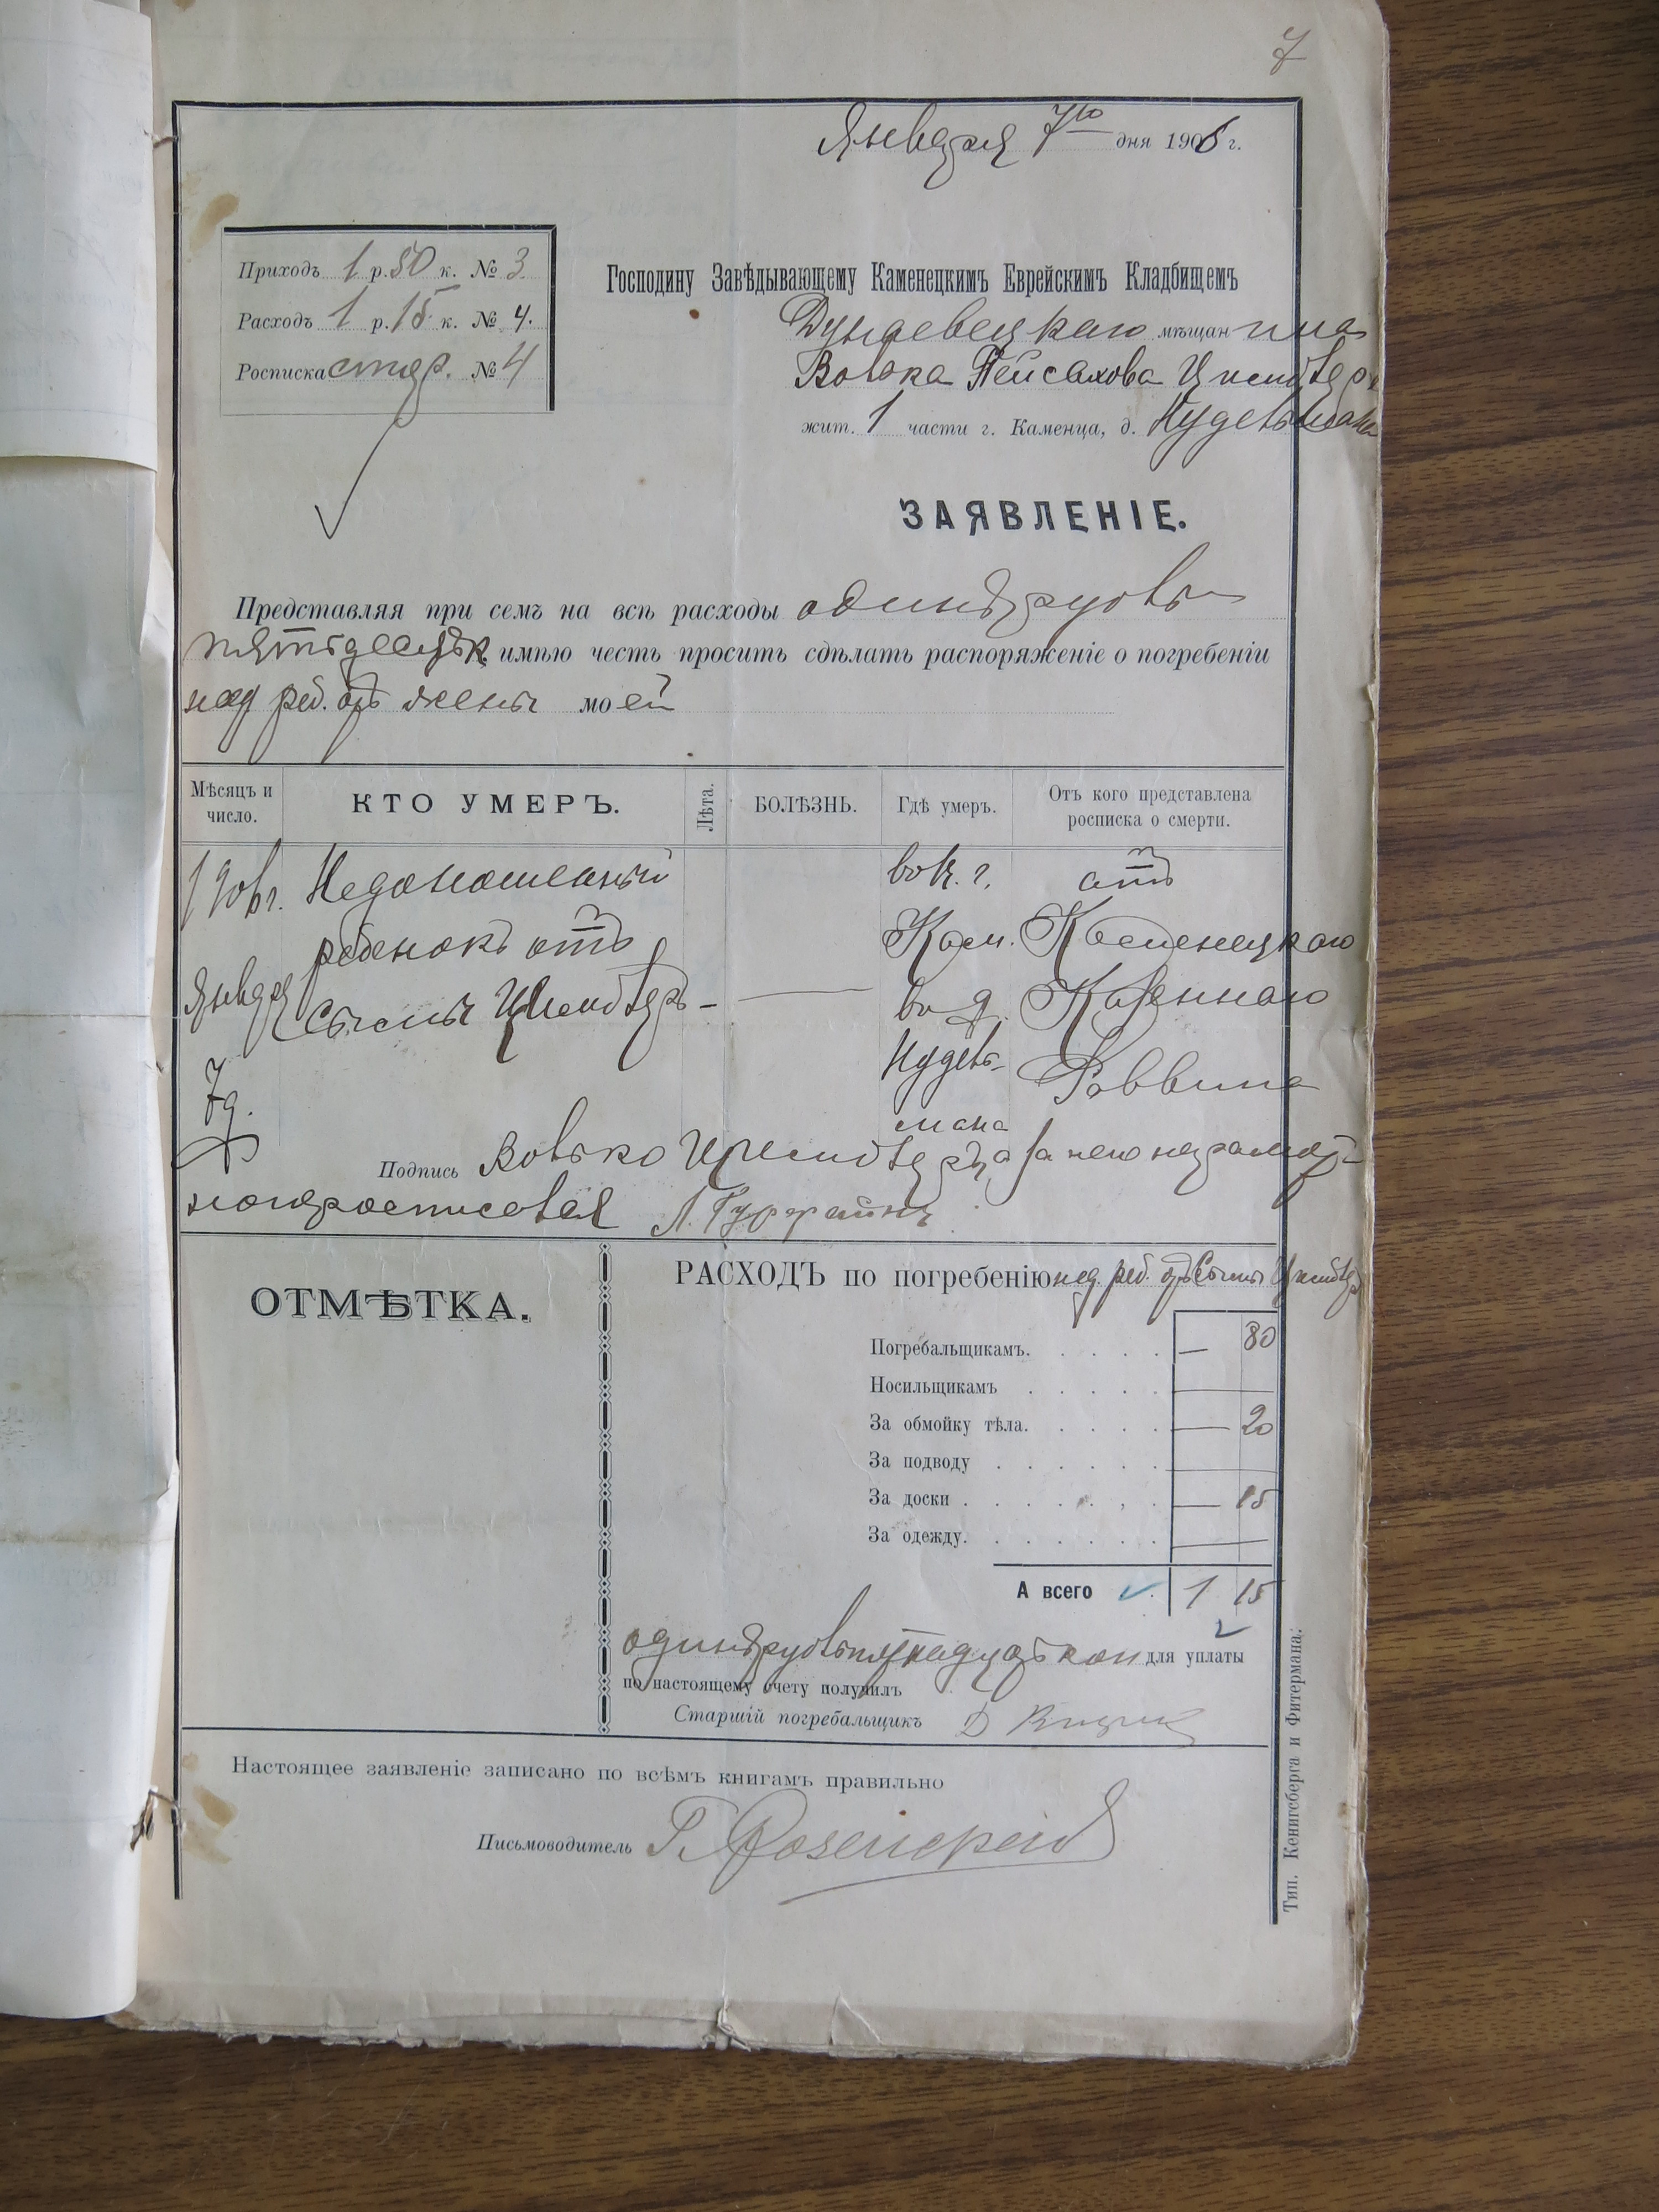 7
Января 7го дня 1906 г.
Приходъ 1 р. 50 к. № 3
Расходъ 1 р. 15 к. № 4.
Росписка № 4
Господину Завѣдывающему Каменецкимъ Еврейскимъ Кладбищемъ
Дунаевецкаго мѣщанина
Вовка Пейсахова
жит. 1 части г. Каменца, д. Нудельмана
ЗАЯВЛЕНІЕ.
Представляя при семъ на всѣ расходы одинъ рубль
пятьдесятъ к. имѣю честь просить сдѣлать распоряженіе о погребеніи
нед реб. отъ жены моей
Мѣсяцъ и число.
КТО УМЕРЪ.
Лѣта.
БОЛѢЗНЬ.
Гдѣ умеръ.
Отъ кого представлена росписка о смерти.
Недоношенный
ребенокъ отъ
Января
7 д.
—
въ г.
Кам.
въ д.
Нудель-
мана
отъ
Каменецкаго
Казеннаго
Раввина
Подпись Вовко а за него неграмот-
наго росписался Л. Гурфайнъ
ОТМѢТКА.
РАСХОДЪ по погребенію нед. реб. отъ
Погребальщикамъ. — 80
Носильщикамъ —
За обмойку тѣла. — 20
За подводу —
За доски — 15
За одежду. —
А всего 1 15
одинъ рубль пятнадцать коп для уплаты
по настоящему счету получилъ
Старшій погребальщикъ
Настоящее заявленіе записано по всѣмъ книгамъ правильно
Письмоводитель Г.
Тип. Кенигсберга и Фитермана.